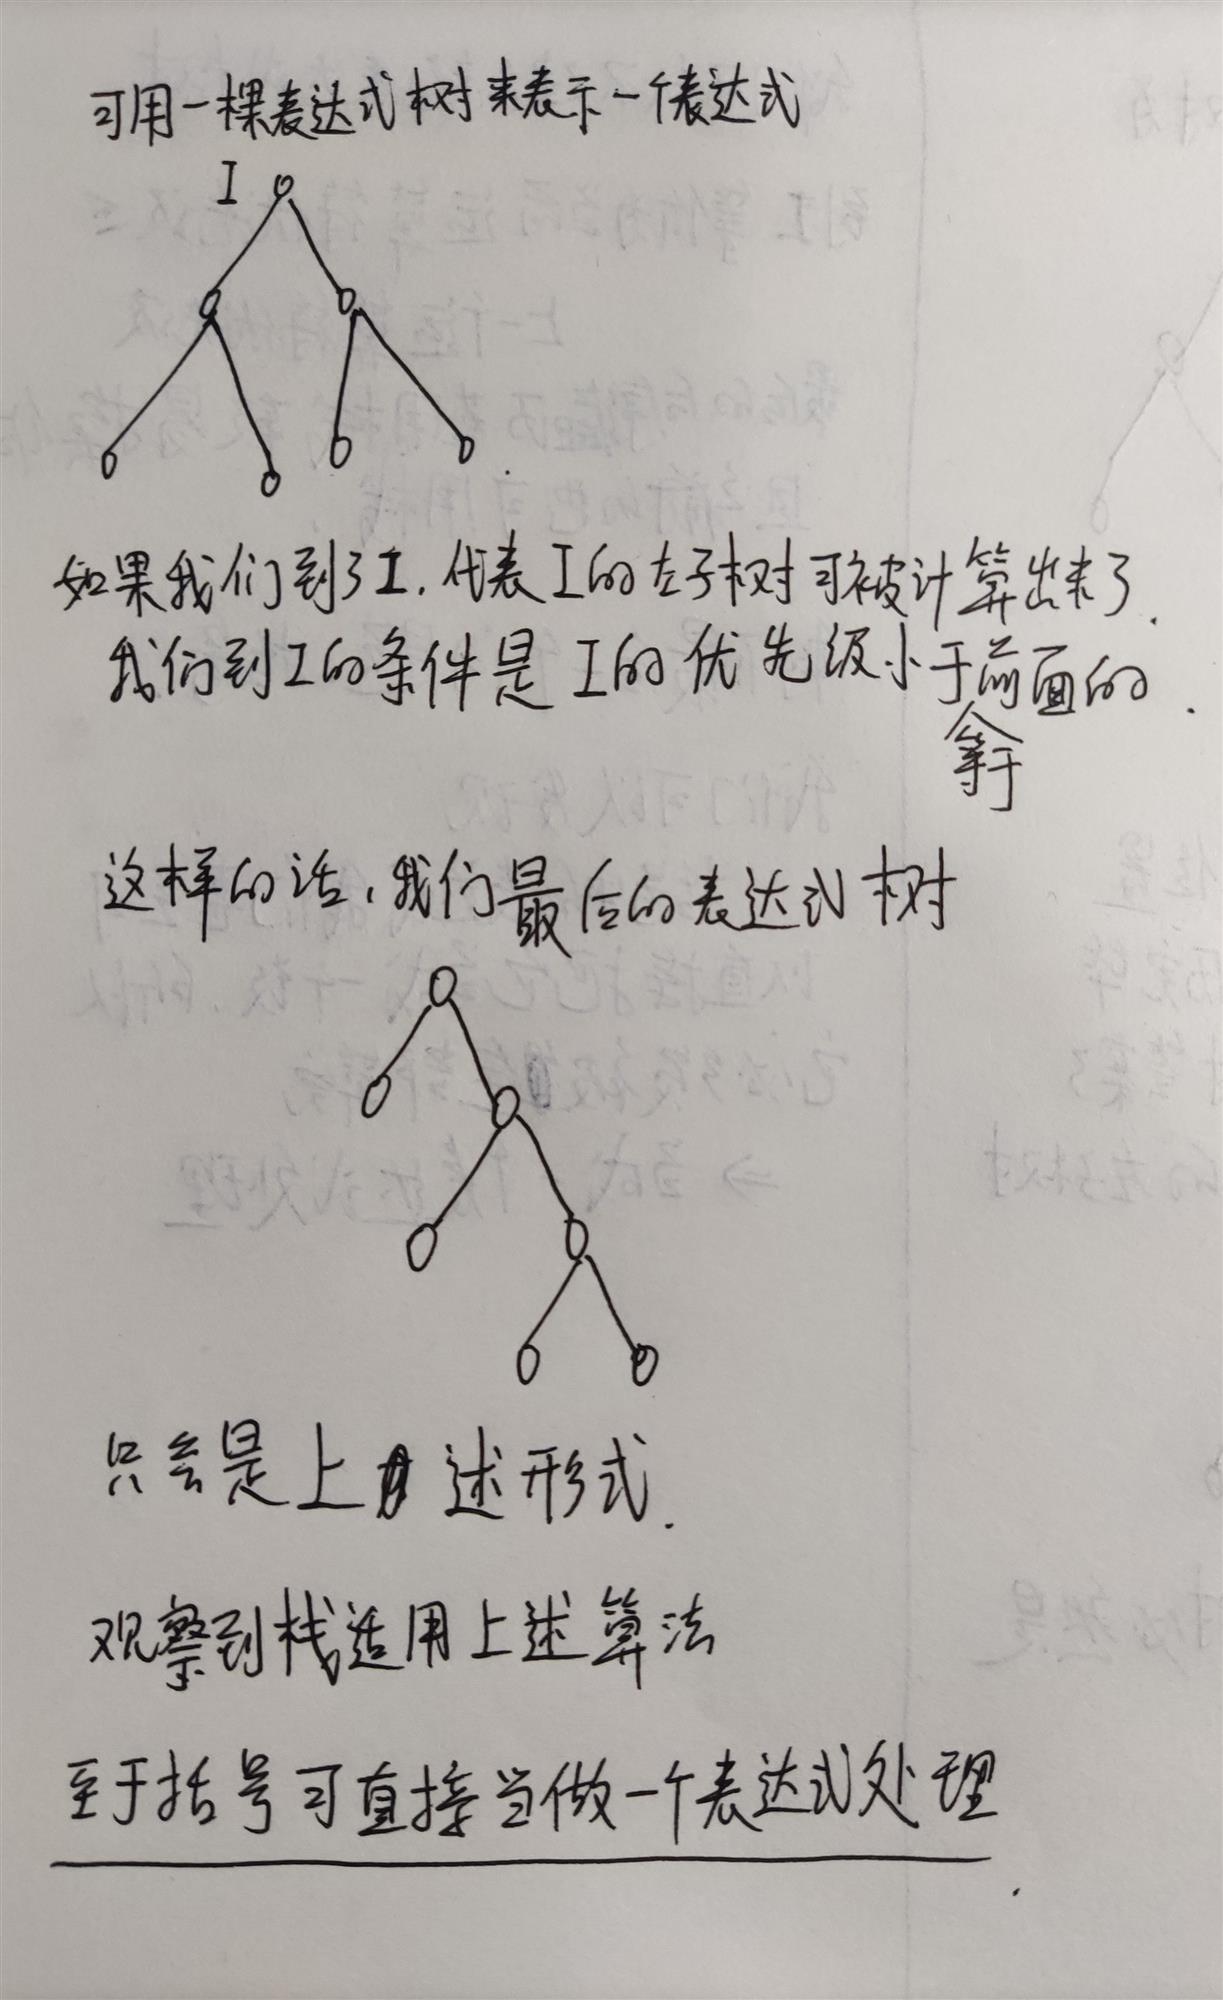 可用一棵表达式树来表示一个表达式
I
如果我们到了I.代表I的左子树可被计算出来了.
我们到I的条件是I的优先级小于前面的.
等于
这样的话,我们最后的表达式树
只会是上述形式.
观察到栈适用上述算法
至于括号可直接当做一个表达式处理.